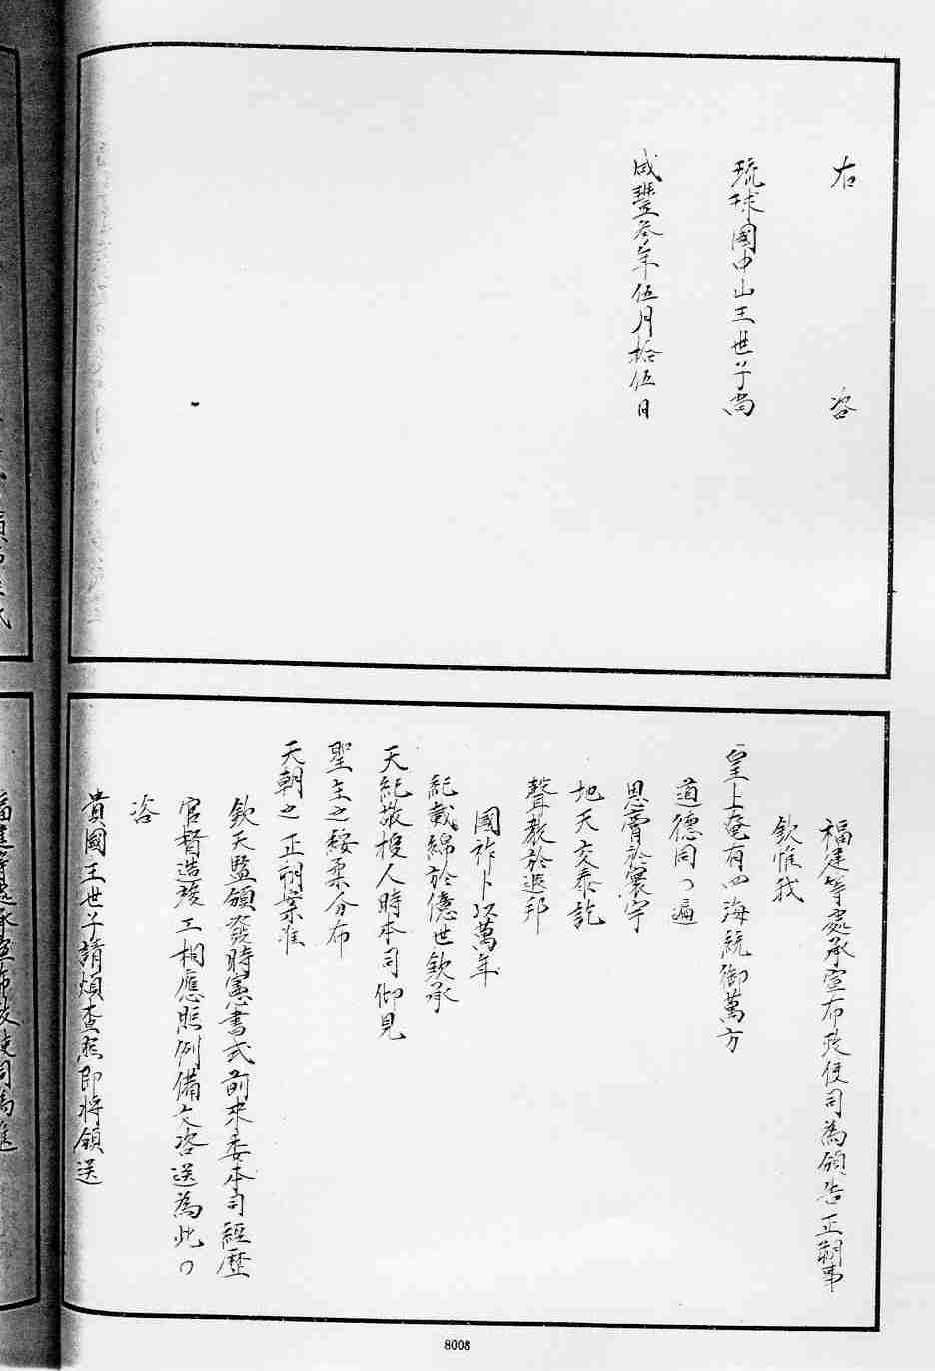 右　咨
琉球國中山王世子尚
咸豐叁年伍月拾伍日
福建等處承宣布政使司為頒告正朔事
欽惟我
皇上奄有四海統御萬方
道德同々遍
恩膏於寰宇
地天交泰訖
聲教於遐邦
國祚卜以萬年
紀載綿於億世欽承
天紀敬授人時本司仰見
聖主之綏柔分布
天朝之正朔案准
欽天監頒發時憲書式前來委本司經歷
官督造竣工相應照例備文咨送為此々
咨
貴國王世子請煩查照即將頒送
福建等處承宣布政使司為進
8008